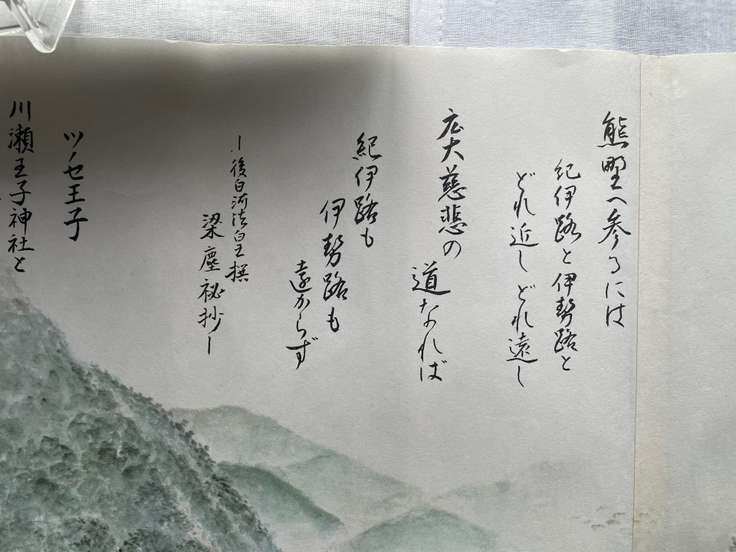 熊野へ参るには
紀伊路と伊勢路と
どれ近しどれ遠し
広大慈悲の
道なれば
紀伊路も
伊勢路も
遠からず
ー後白河法皇撰
梁塵秘抄ー
ツノセ王子
川瀬王子神社と